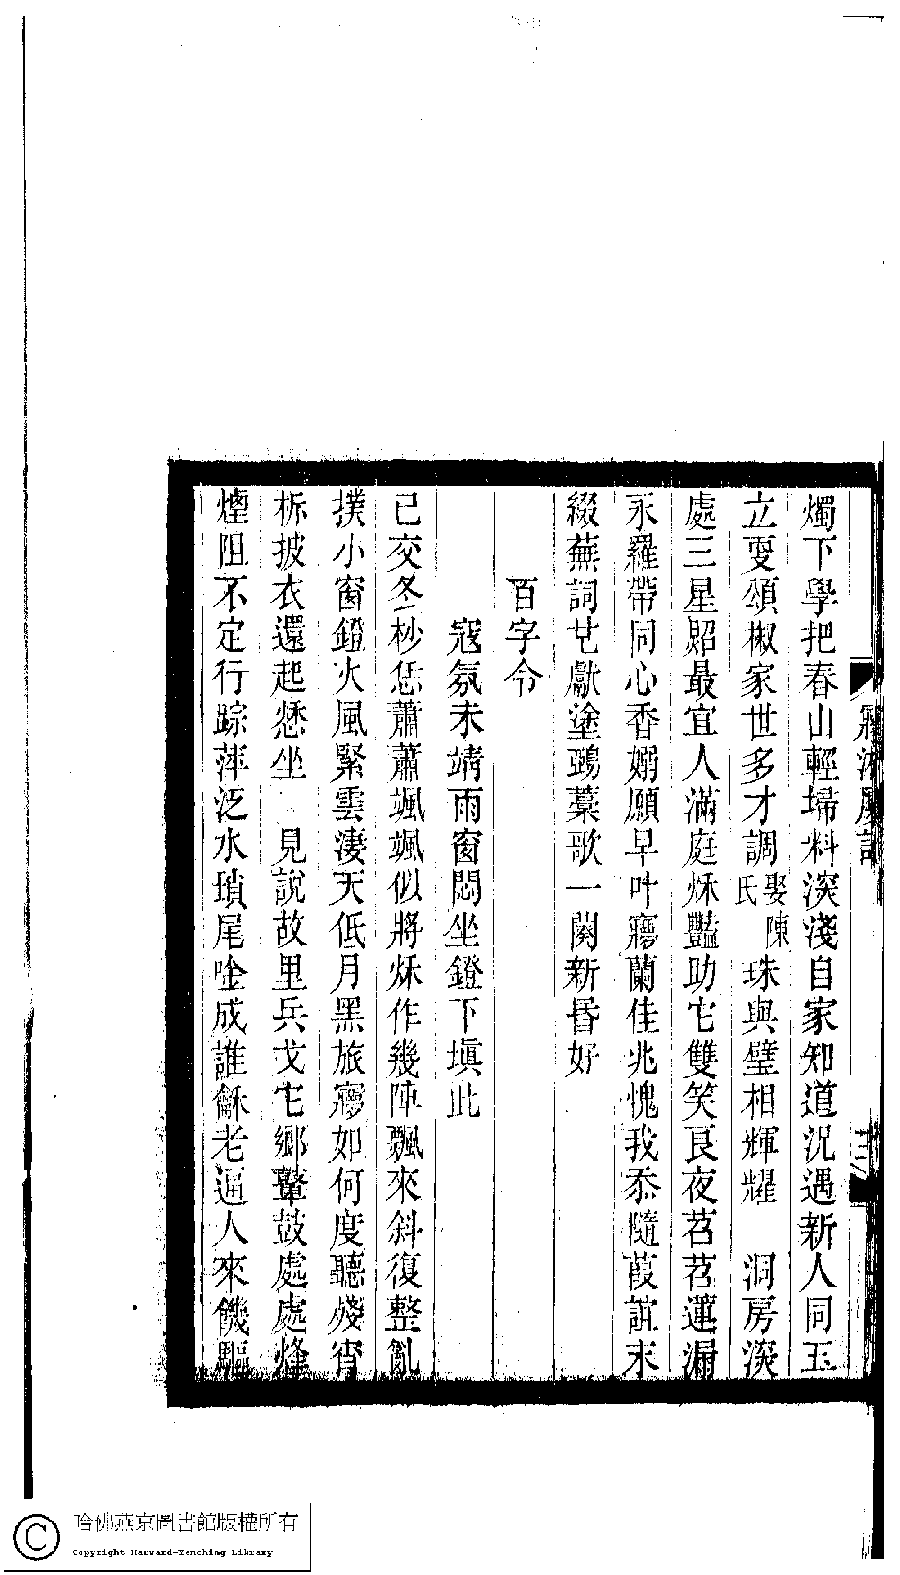 燭下學把春山輕埽料深淺自家知道況遇新人同玉
立耎頌椒家世多才調娶陳氏珠與璧相輝耀　洞房深
處三星炤最宜人滿庭秌豔助它雙笑良夜苕苕蓮漏
永羅帶同心香嫋願早叶寱蘭佳兆愧我忝隨葭誼末
綴蕪詞艺獻塗鵶藁歌一闋新昏好
百字令
寇氛未靖雨窗悶坐鐙下塡此
已交冬杪恁蕭蕭颯颯似將秌作幾陣飄來斜復整亂
撲小窗鐙火風緊雲淒天低月黑旅寱如何度聽殘宵
柝披衣還起愁坐　見說故里兵戈它鄉鼙鼓處處烽
煙阻不定行踪萍泛水瑣尾唫成誰龢老逼人來饑驅
哈佛燕京圖書館版權所有
Copyright Harvard-Yenching Library